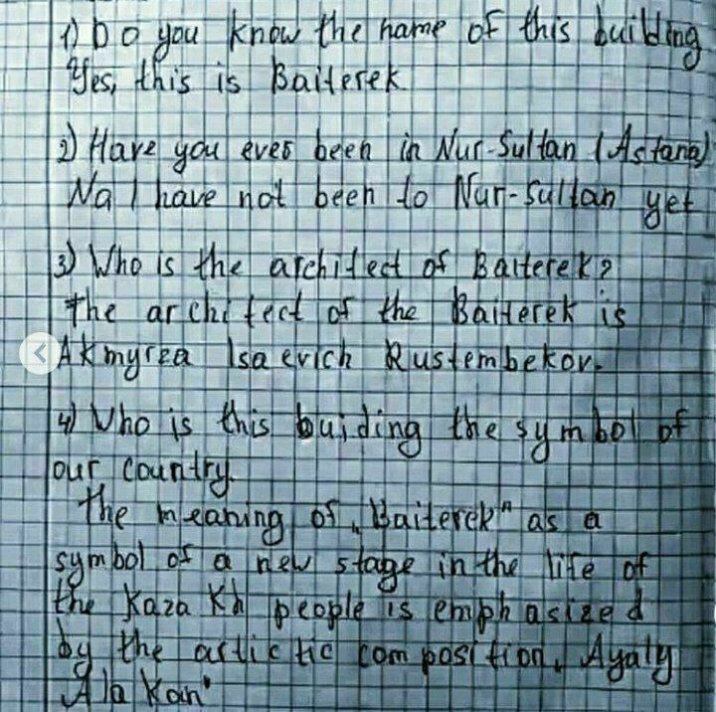 1) Do you know the name of this building
Yes, this is Baiterek
2) Have you ever been in Nur-Sultan (Astana)
Na I have not been to Nur-Sultan yet
3) Who is the architect of Baiterek?
The architect of the Baiterek is
Akmyrza Isaevich Rustembekov.
4) Who is this buiding the symbol of
our country.
The meaning of „Baiterek" as a
symbol of a new stage in the life of
the Kazakh people is emphasized
by the artictic composition „Ayaly
Alakan"